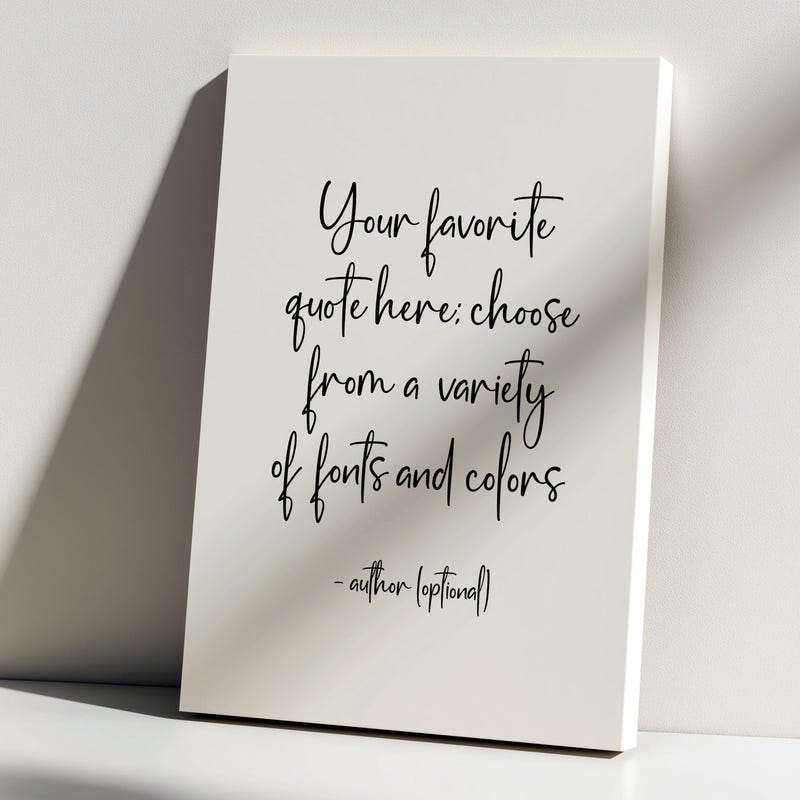 Your favorite
quote here; choose
from a variety
of fonts and colors
- author (optional)